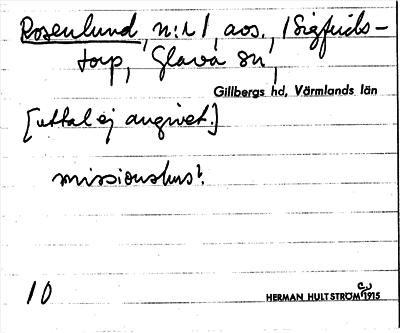 Rosenlund, n:r 1, avs., /Sigfrids-
torp, Glava sn,
Gillbergs hd, Värmlands län
[uttal ej angivet.]
missionshus?
10
HERMAN HULTSTRÖM 1915